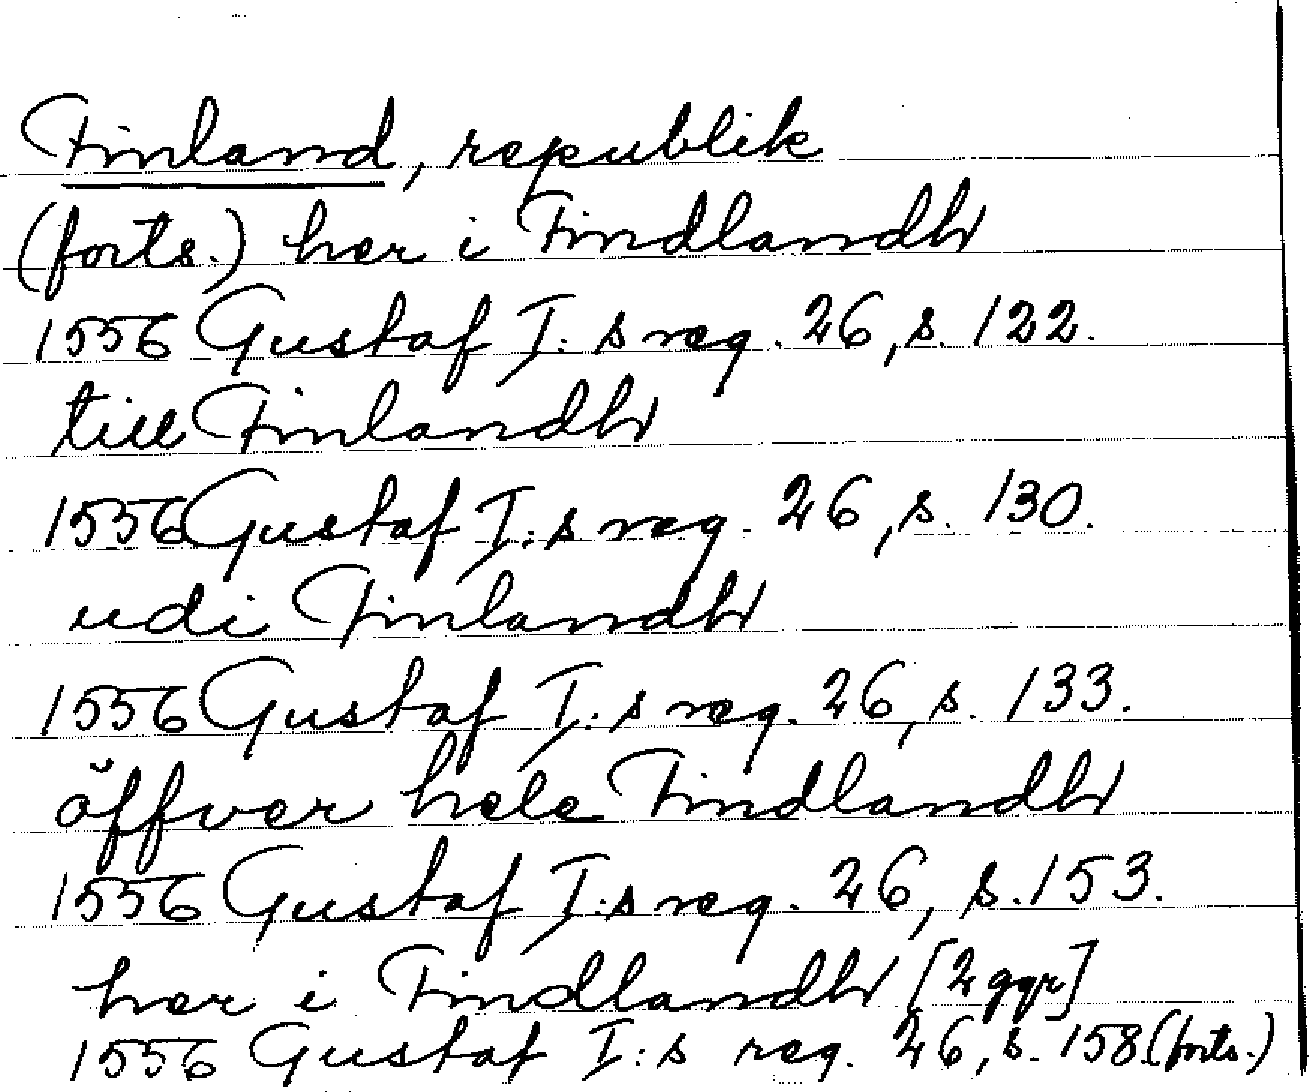 Finland, republik
(forts.) her i Findlandh
1556 Gustaf I:s reg. 26, s. 122.
till Finlandh
1556 Gustaf I:s reg. 26, s. 130.
udi Finlandh
1556 Gustaf I:s reg. 26, s. 133.
öffver hele Findlandh
1556 Gustaf I:s reg. 26, s. 153.
her i Findlandh [2 ggr]
1556 Gustaf I:s reg. 26, s. 158. (forts.)